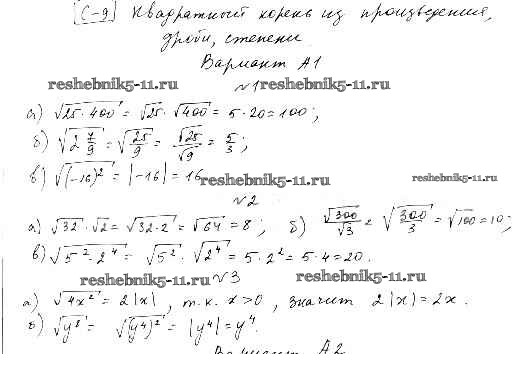 [С-9] Квадратный корень из произведения,
дроби, степени
Вариант А1
reshebnik5-11.ru №1 reshebnik5-11.ru
а) √(25·400) = √25 · √400 = 5·20 = 100;
б) √(2 7/9) = √(25/9) = √25/√9 = 5/3;
в) √((-16)²) = |-16| = 16 reshebnik5-11.ru reshebnik5-11.ru
№2
а) √32 · √2 = √(32·2) = √64 = 8; б) √300/√3 = √(300/3) = √100 = 10;
в) √(5²·2⁴) = √5² · √2⁴ = 5·2² = 5·4 = 20.
reshebnik5-11.ru №3 reshebnik5-11.ru
а) √(4x²) = 2|x|, т.к. x>0, значит 2|x| = 2x.
б) √y⁸ = √((y⁴)²) = |y⁴| = y⁴.
Вариант А2